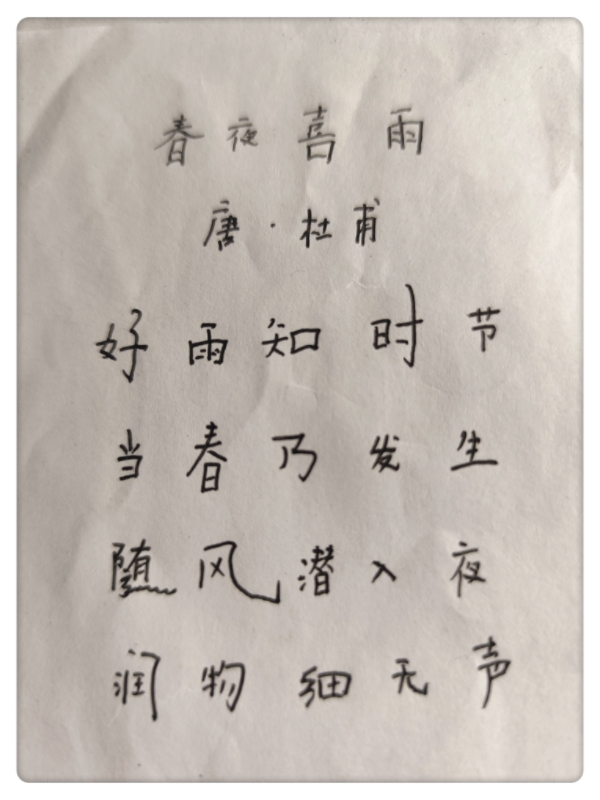 春夜喜雨
唐·杜甫
好雨知时节
当春乃发生
随风潜入夜
润物细无声